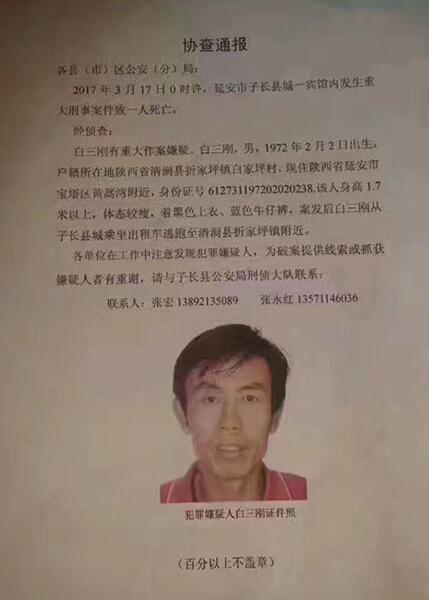 协查通报
各县（市）区公安（分）局：
2017 年 3 月 17 日 0 时许，延安市子长县城一宾馆内发生重
大刑事案件致一人死亡。
经侦查：
白三刚有重大作案嫌疑。白三刚，男，1972 年 2 月 2 日出生，
户籍所在地陕西省清涧县折家坪镇白家坪村，现住陕西省延安市
宝塔区黄蒿湾附近，身份证号 612731197202020238.该人身高 1.7
米以上，体态较瘦，着黑色上衣、蓝色牛仔裤，案发后白三刚从
子长县城乘坐出租车逃跑至清涧县折家坪镇附近。
各单位在工作中注意发现犯罪嫌疑人，为破案提供线索或抓获
嫌疑人者有重谢，请与子长县公安局刑侦大队联系：
联系人：张宏 13892135089 张永红 13571146036
犯罪嫌疑人白三刚证件照
（百分以上不盖章）